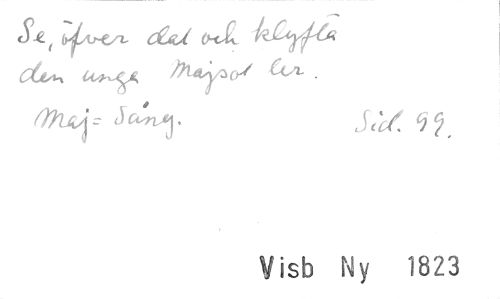 Se, öfver dal och klyfta
den unga Majsol ler.
Maj= Sång.
Sid. 99.
Visb Ny 1823